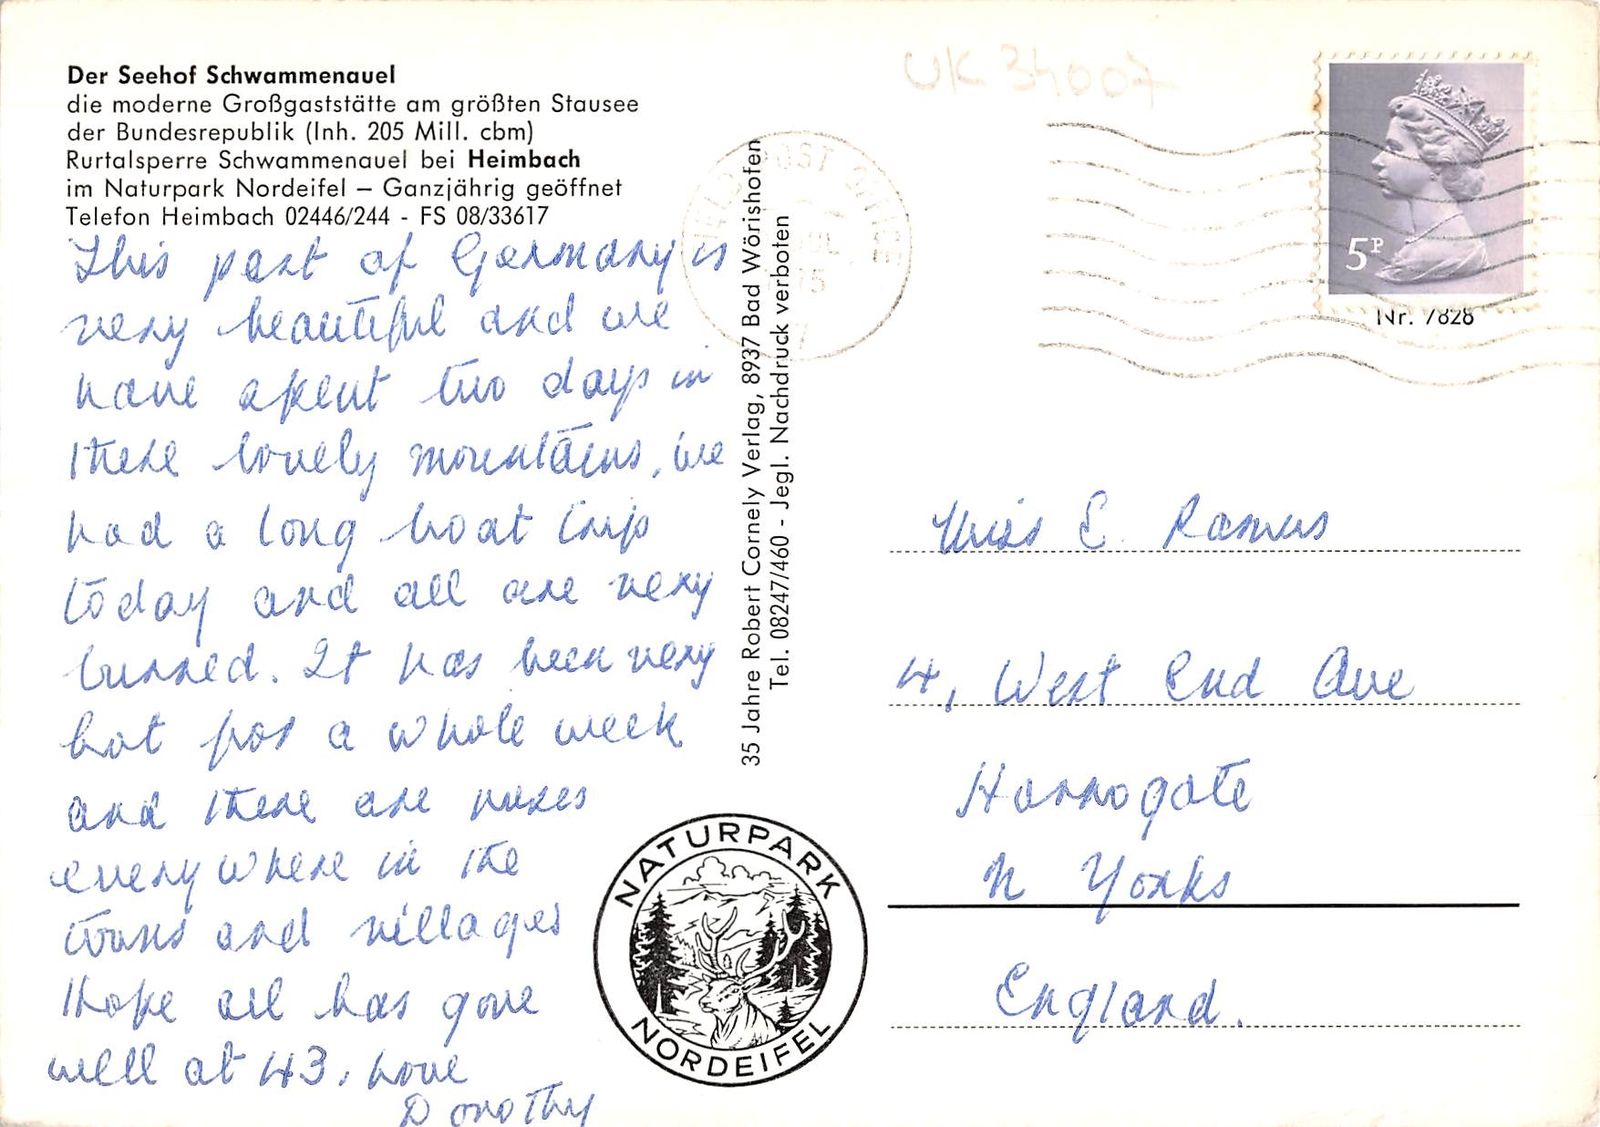 Der Seehof Schwammenauel
die moderne Großgaststätte am größten Stausee
der Bundesrepublik (Inh. 205 Mill. cbm)
Rurtalsperre Schwammenauel bei Heimbach
im Naturpark Nordeifel – Ganzjährig geöffnet
Telefon Heimbach 02446/244 - FS 08/33617
This part of Germany is
very beautiful and we
have spent two days in
these lovely mountains, we
had a long boat trip
today and all are very
burned. It has been very
hot for a whole week
and there are
everywhere in the
towns and villages
Hope all has gone
well at 43. Love
Dorothy
35 Jahre Robert Cornely Verlag, 8937 Bad Wörishofen
Tel. 08247/460 - Jegl. Nachdruck verboten
NATURPARK
NORDEIFEL
UK 34007
POST OFFICE
5P
Nr. 7828
Miss E. Ramus
4, West End Ave
Harrogate
N Yorks
England.